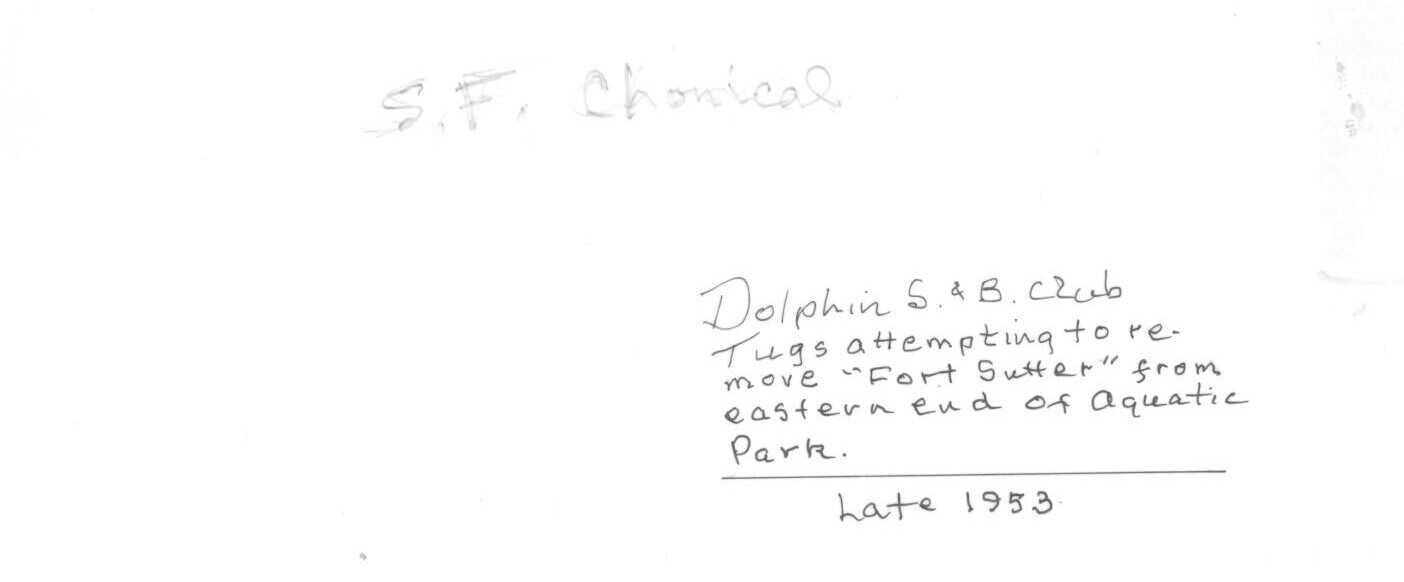 S.F. Chonical
Dolphin S. & B. Club
Tugs attempting to re-
move "Fort Sutter" from
eastern end of Aquatic
Park.
Late 1953